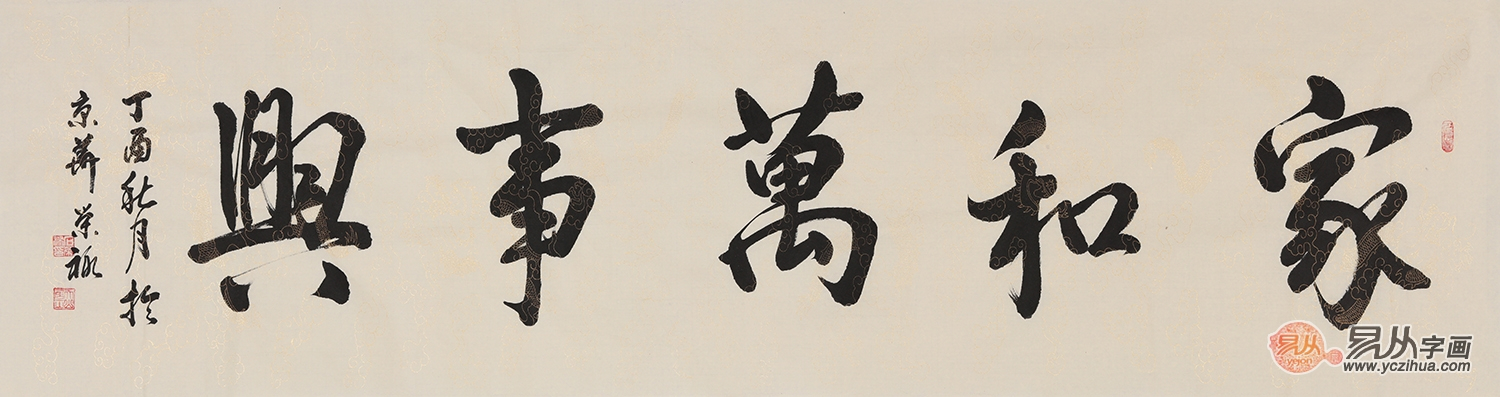 家和萬事興
丁酉秋月於
京華 榮祿
易从字画
www.yczihua.com
yejon